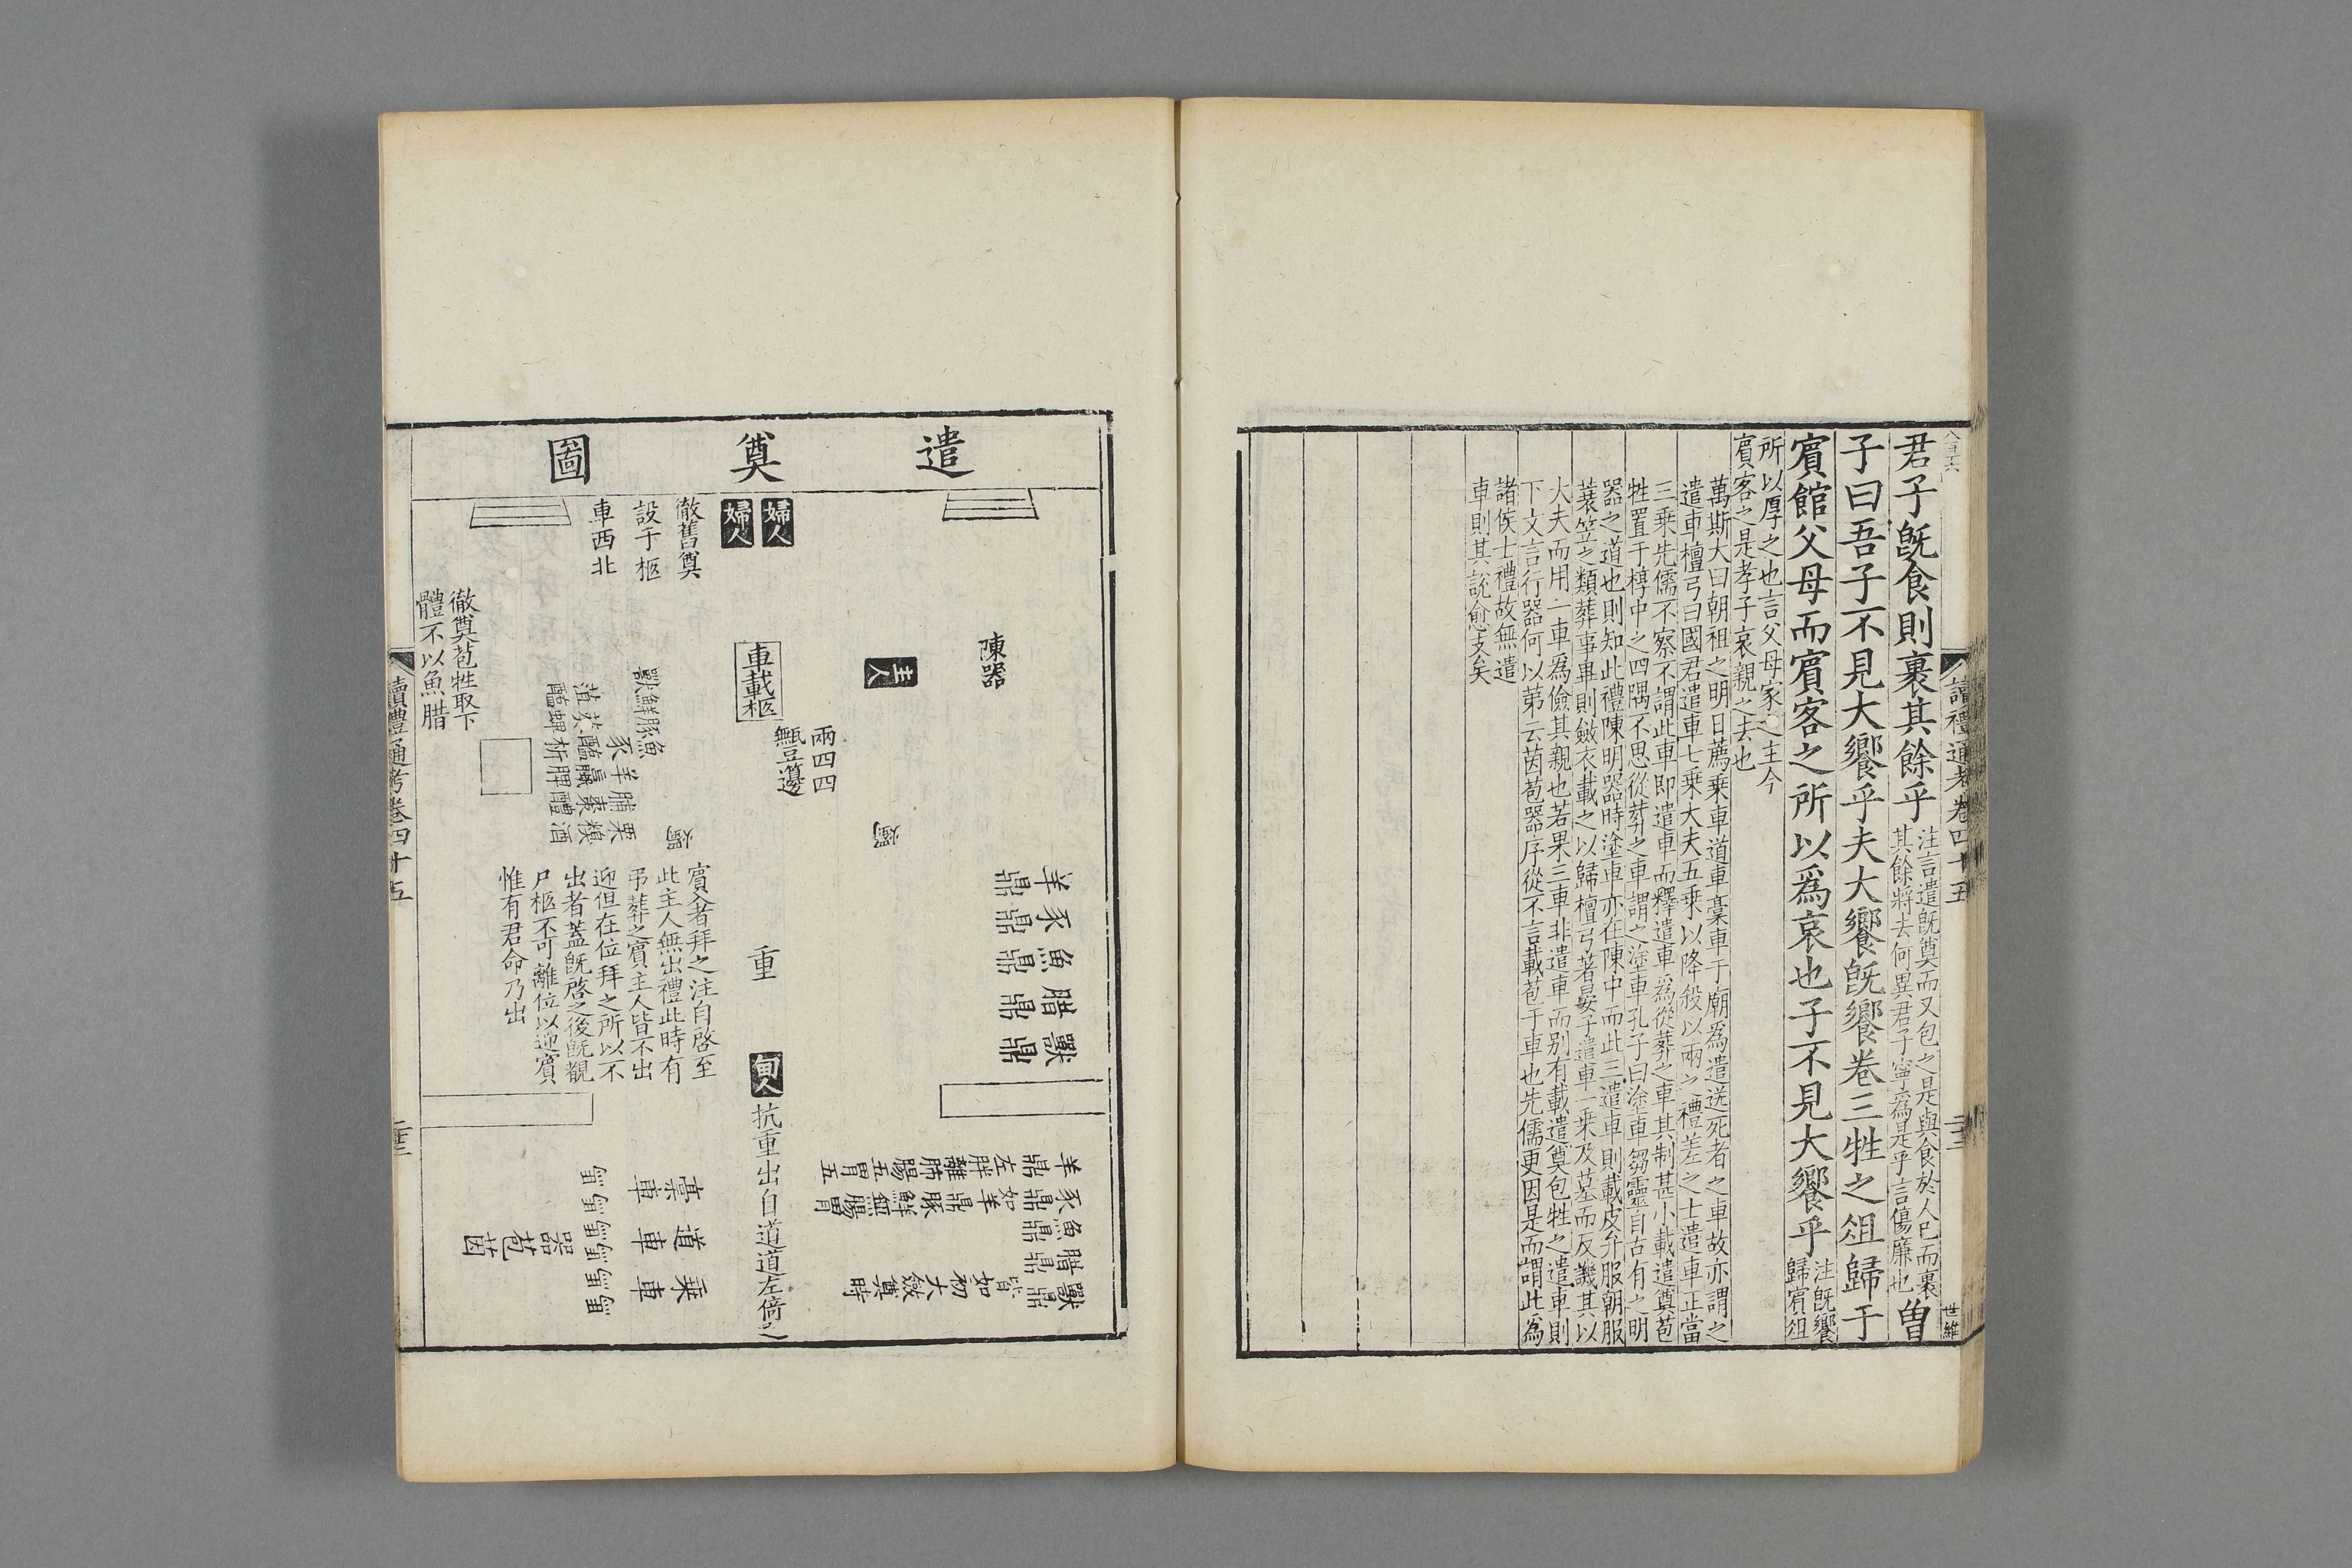 君子旣食則裹其餘乎注言遣旣奠而又包之是與食於人已而裹其餘將去何異君子寧爲是乎言傷廉也曽
子曰吾子不見大饗乎夫大饗旣饗卷三牲之俎歸于
賓館父母而賓客之所以爲哀也子不見大饗乎注旣饗歸賓俎
所以厚之也言父母家之主今
賓客之是孝子哀親之去也
萬斯大曰朝祖之明日薦乗車道車槀車于廟爲遣送死者之車故亦謂之
遣車檀弓曰國君遣車七乗大夫五乗以降殺以兩之禮差之士遣車正當
三乗先儒不察不謂此車即遣車而釋遣車爲從葬之車其制甚小載遣奠苞
牲置于椁中之四隅不思從葬之車謂之塗車孔子曰塗車芻靈自古有之明
器之道也則知此禮陳明器時塗車亦在陳中而此三遣車則載皮弁服朝服
蓑笠之類葬事畢則斂衣載之以歸檀弓著晏子遣車一乗及墓而反譏其以
大夫而用一車爲儉其親也若果三車非遣車而别有載遣奠包牲之遣車則
下文言行器何以第云茵苞器序從不言載苞于車也先儒更因是而謂此爲
諸侯士禮故無遣
車則其説愈支矣
讀禮通考卷四十五
二十三
世維
遣奠圖
陳器
主人
婦人
婦人
徹舊奠
設于柩
車西北
車載柩
兩四四
甒豆籩
獸鮮豚魚
豕羊脯栗
葅葵醢蠃棗糗
醢蜱析脾醴酒
徹奠苞牲取下
體不以魚腊
羊鼎
豕鼎
魚鼎
腊鼎
獸鼎
重
甸人
抗重出自道道左倚之
賓入者拜之注自啓至
此主人無出禮此時有
弔葬之賓主人皆不出
迎但在位拜之所以不
出者蓋旣啓之後旣覩
尸柩不可離位以迎賓
惟有君命乃出
羊鼎左胖離肺腸五胃五
豕鼎如羊鼎豚鮮無腸胃
魚鼎
腊鼎
獸鼎
皆如初大斂奠時
槀車
道車
乗車
器
苞
茵
讀禮通考卷四十五